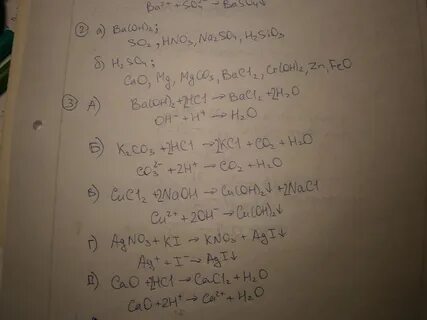 Ba²⁺ + SO₄²⁻ → BaSO₄↓
② а) Ba(OH)₂;
SO₂, HNO₃, Na₂SO₄, H₂SiO₃
б) H₂SO₄;
CaO, Mg, MgCO₃, BaCl₂, Cr(OH)₂, Zn, FeO
③ А)
Ba(OH)₂ + 2HCl → BaCl₂ + 2H₂O
OH⁻ + H⁺ → H₂O
Б) K₂CO₃ + 2HCl → 2KCl + CO₂ + H₂O
CO₃²⁻ + 2H⁺ → CO₂ + H₂O
В) CuCl₂ + 2NaOH → Cu(OH)₂↓ + 2NaCl
Cu²⁺ + 2OH⁻ → Cu(OH)₂↓
Г) AgNO₃ + KI → KNO₃ + AgI↓
Ag⁺ + I⁻ → AgI↓
Д) CaO + 2HCl → CaCl₂ + H₂O
CaO + 2H⁺ → Ca²⁺ + H₂O